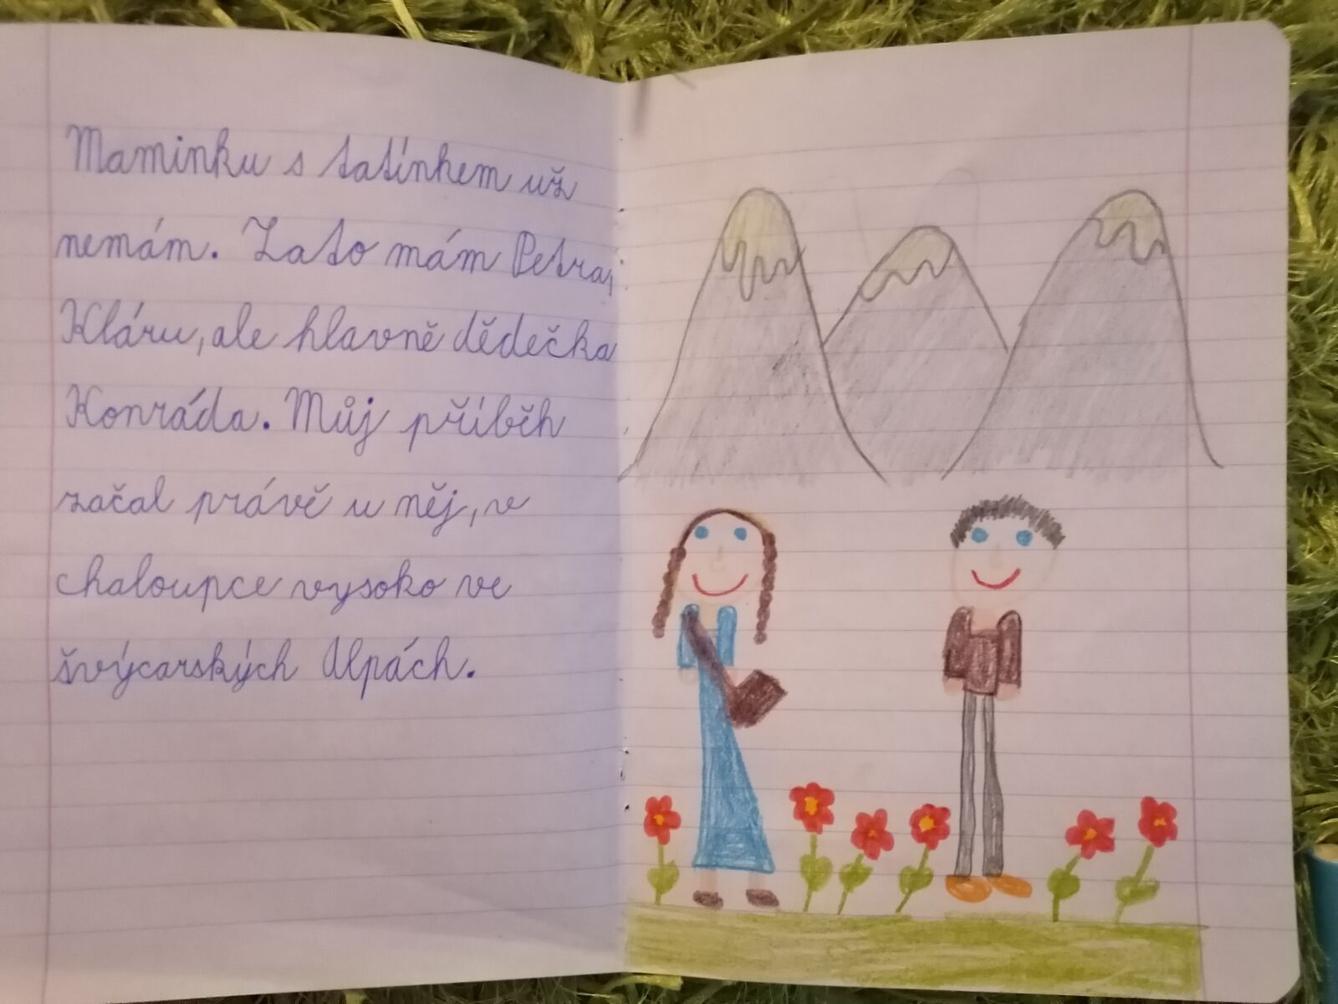 Maminku s tatínkem už
nemám. Zato mám Petra,
Kláru, ale hlavně dědečka
Konráda. Můj příběh
začal právě u něj, v
chaloupce vysoko ve
švýcarských Alpách.